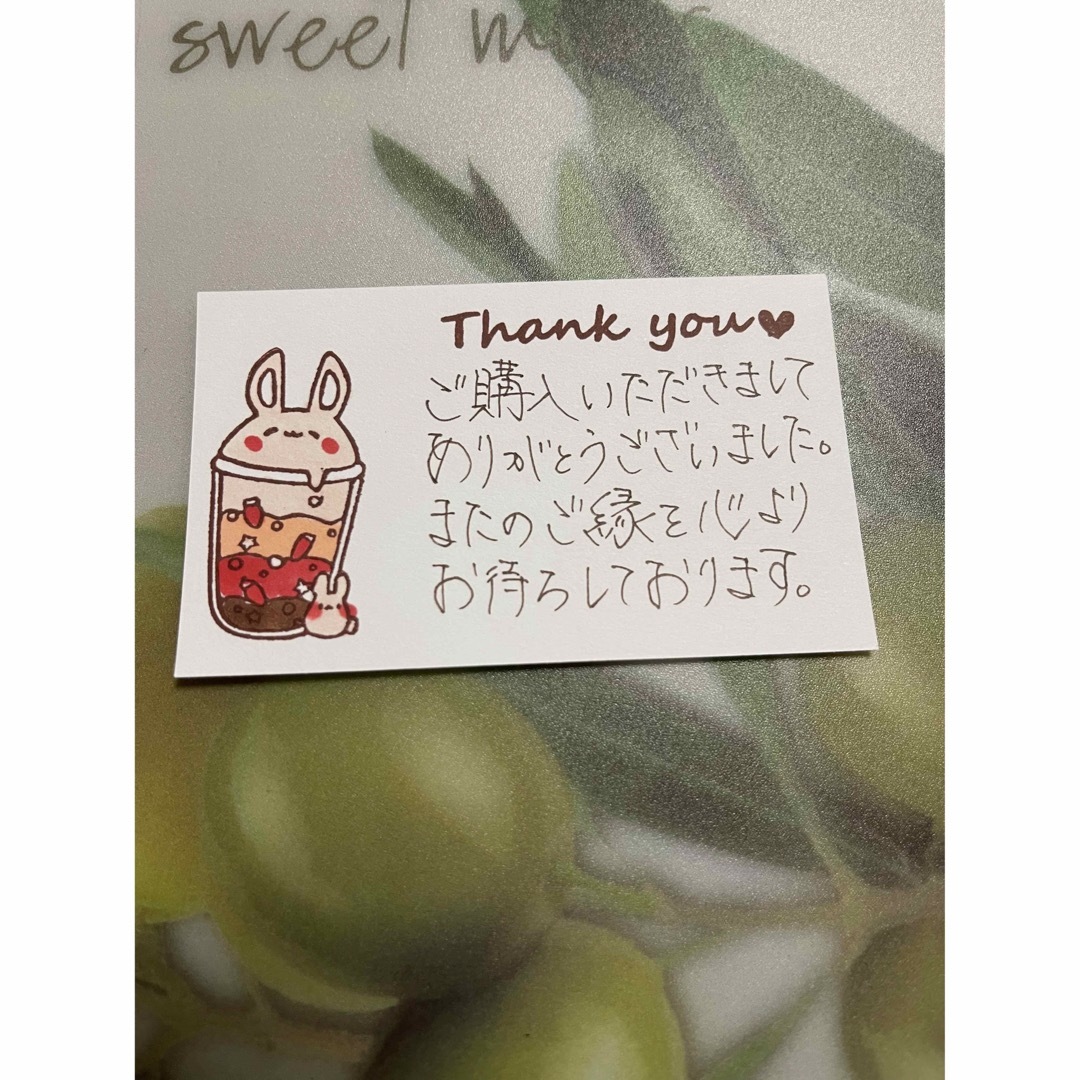 sweet
Thank you♥
ご購入いただきまして
ありがとうございました。
またのご縁を心より
お待ちしております。